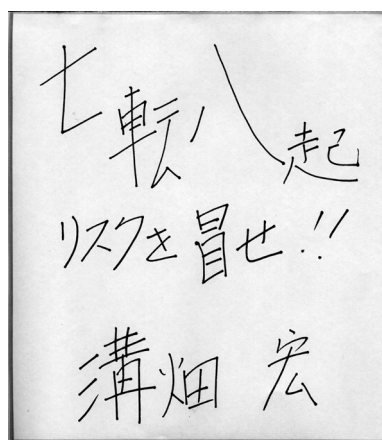 七転八起
リスクを冒せ!!
溝畑 宏